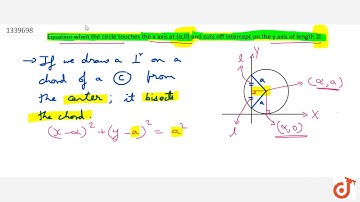 1339698
Equation when the circle touches the x axis at (α,0) and cuts off intercept on the y axis of length 2l.
→ If we draw a ⊥r on a
chord of a Ⓒ from
the center; it bisects
the chord.
(x-α)² + (y-a)² = a²
Y
l
a
(α, a)
a
l
X
(α, 0)
doubtnut